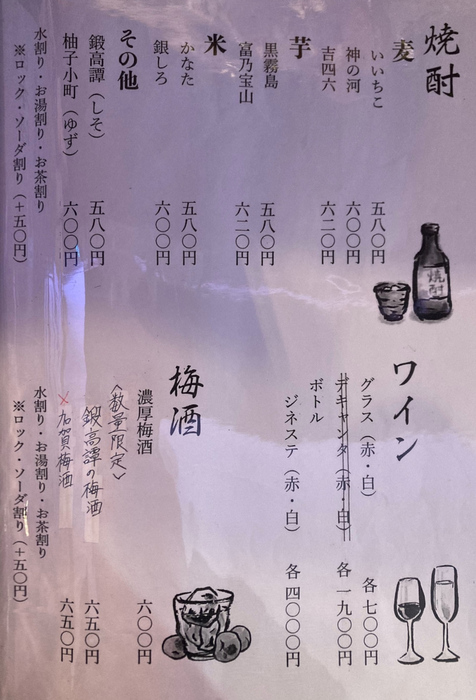 焼酎
麦
いいちこ 五八〇円
神の河 六〇〇円
吉四六 六二〇円
芋
黒霧島 五八〇円
富乃宝山 六二〇円
米
かなた 五八〇円
銀しろ 六〇〇円
その他
鍛高譚（しそ） 五八〇円
柚子小町（ゆず） 六〇〇円
水割り・お湯割り・お茶割り
※ロック・ソーダ割り（＋五〇円）
焼酎
ワイン
グラス（赤・白） 各七〇〇円
デキャンタ（赤・白） 各一九〇〇円
ボトル
ジネステ（赤・白） 各四〇〇〇円
梅酒
濃厚梅酒 六〇〇円
〈数量限定〉
鍛高譚の梅酒 六五〇円
×加賀梅酒 六五〇円
水割り・お湯割り・お茶割り
※ロック・ソーダ割り（＋五〇円）